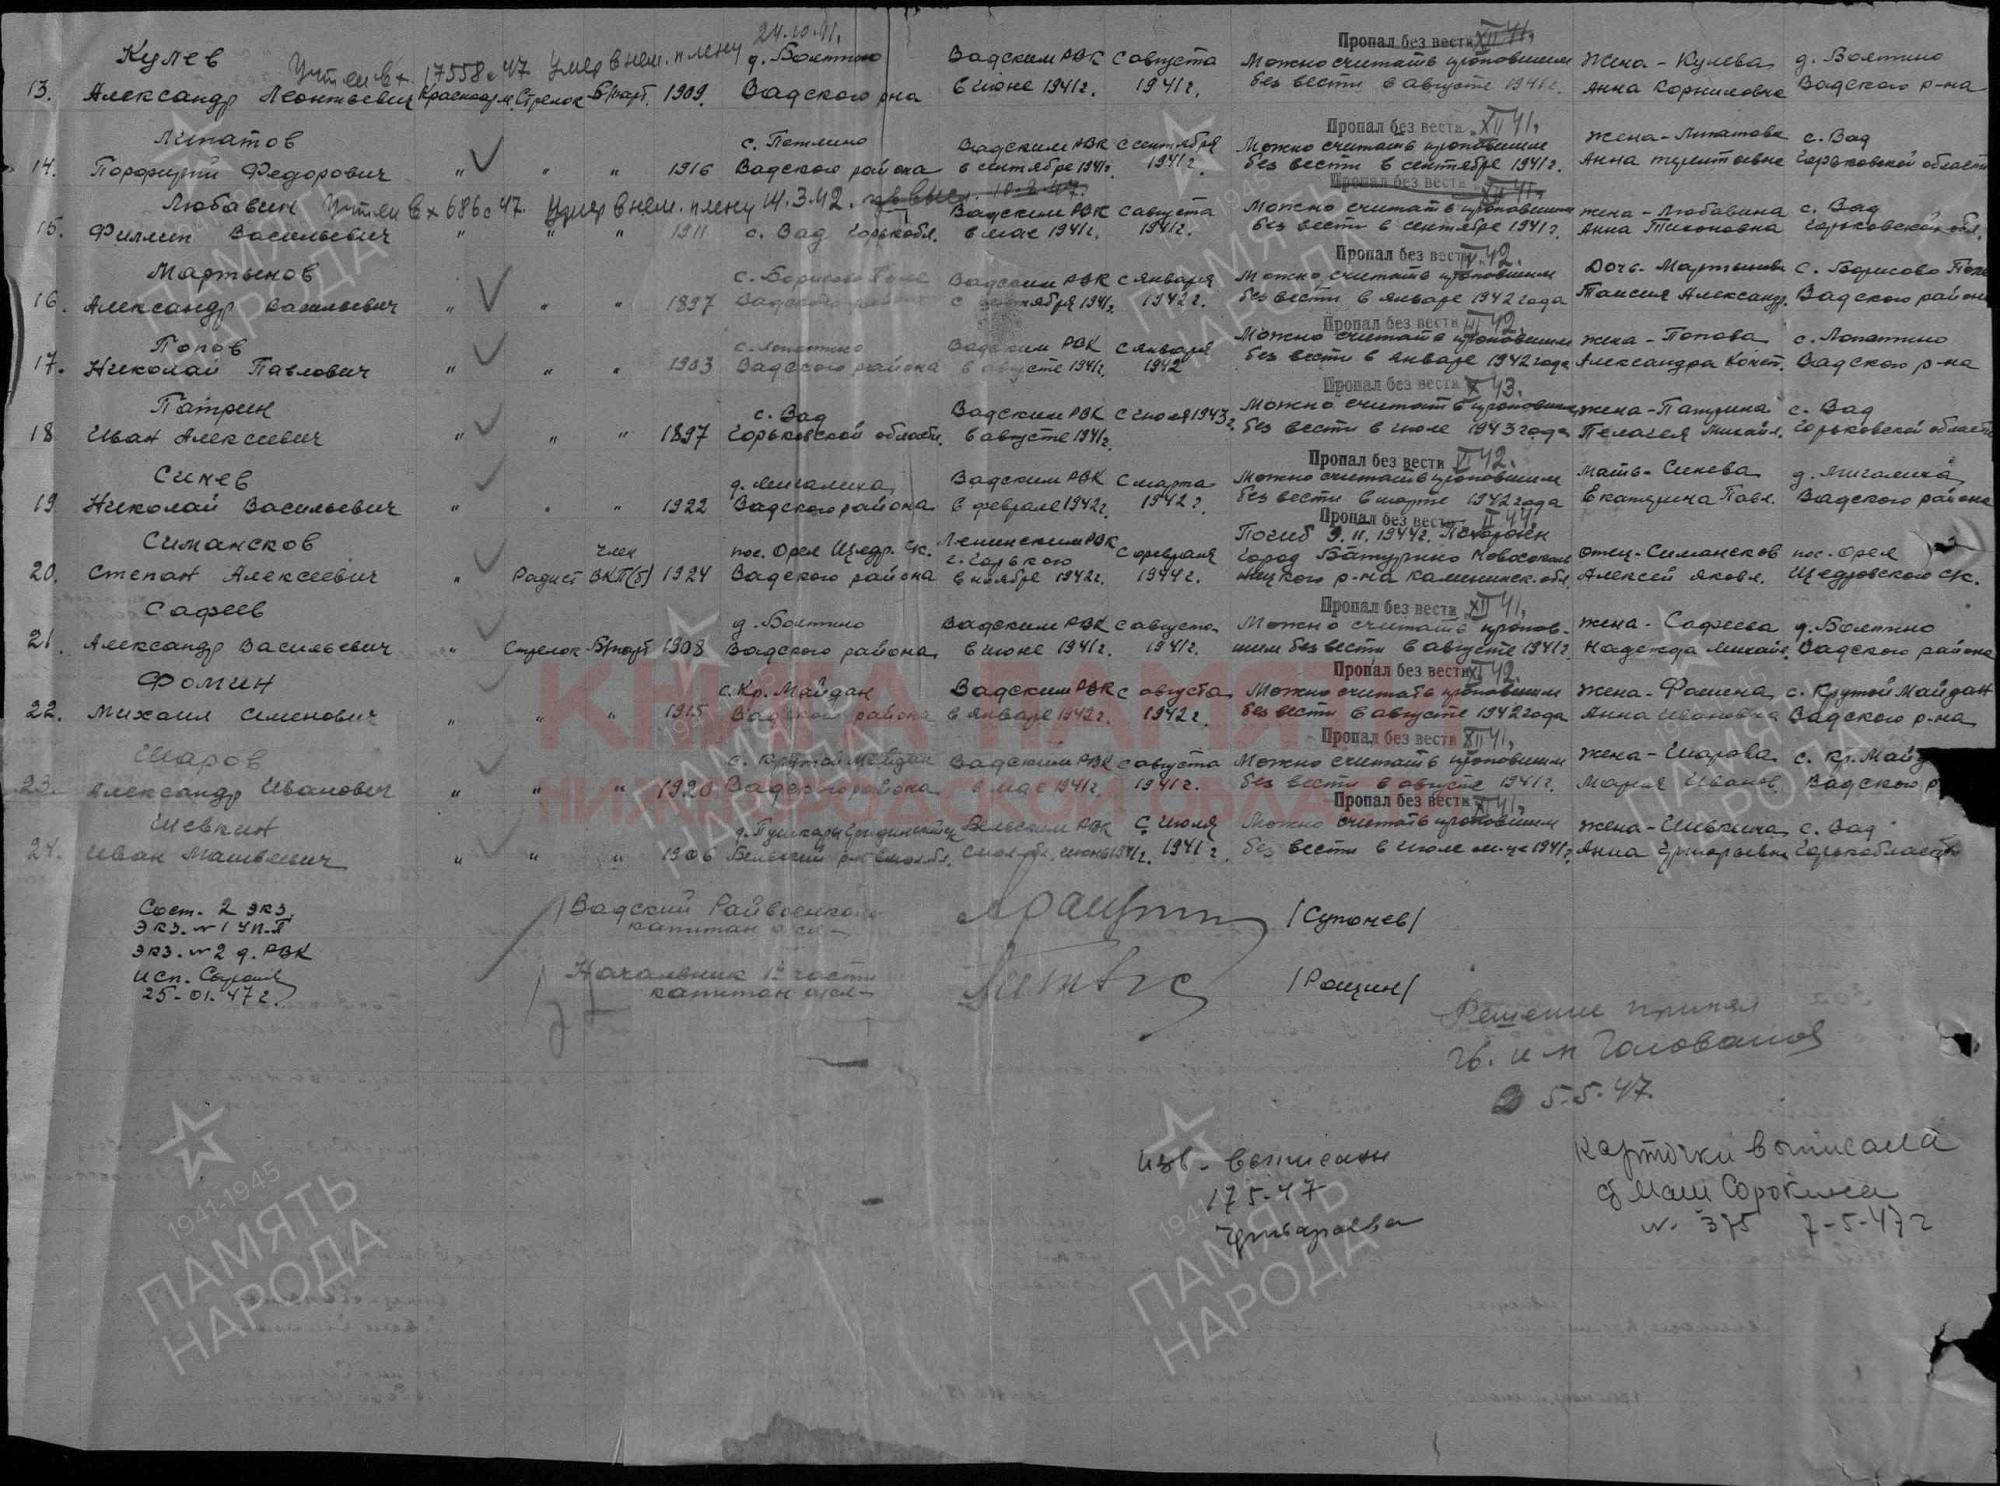 24.10.41.
Кулев Учтен вх. 17558с-47 умер в нем. плену д. Болтино Вадским РВК С августа Пропал без вести XII 41. Можно считать пропавшим Жена - Кулева д. Болтино
13. Александр Леонтьевич Красноарм. Стрелок Б/парт. 1909. Вадского р-на в июне 1941г. 1941г. без вести в августе 1941г. Анна Корниловна Вадского р-на
Пропал без вести XII 41.
Липатов с. Петлино Вадским РВК С сентября Можно считать пропавшим Жена - Липатова с. Вад
14. Порфирий Федорович " " " 1916 Вадского района в сентябре 1941г. 1941г. без вести в сентябре 1941г. Анна Горьковской области
Пропал без вести XII 41.
Любавин Учтен вх 686с-47. Умер в нем. плену 14.3.42. Вадским РВК С августа Можно считать пропавшим Жена - Любавина с. Вад
15. Филипп Васильевич " " " 1911 с. Вад Горьк обл. в мае 1941г. 1941г. без вести в сентябре 1941г. Анна Тихоновна Горьковской обл.
Пропал без вести 42.
Мартынов с. Борисово Поле Вадским РВК С января Можно считать пропавшим Дочь - Мартынова с. Борисово Поле
16. Александр Васильевич " " " 1897 Вадского района 1941г. 1942г. без вести в январе 1942 года Таисия Александр. Вадского района
Пропал без вести III 42.
Попов с. Лопатино Вадским РВК С января Можно считать пропавшим Жена - Попова с. Лопатино
17. Николай Павлович " " " 1903 Вадского района в августе 1941г. 1942 без вести в январе 1942 года Александра Конст. Вадского р-на
Пропал без вести X 43.
Патрин с. Вад Вадским РВК С июля 1943г. Можно считать пропавшим Жена - Патрина с. Вад
18 Иван Алексеевич " " " 1897 Горьковской области в августе 1941г. без вести в июле 1943 года Пелагея Михайл. Горьковской области
Пропал без вести VI 42.
Синев д. Мигалиха Вадским РВК С марта Можно считать пропавшим Мать - Синева д. Мигалиха
19 Николай Васильевич " " " 1922 Вадского района в феврале 1942г. 1942г. без вести в марте 1942 года Екатерина Павл. Вадского района
Пропал без вести II 44.
Симансков член пос. Орел Щедр. ск. Ленинским РВК г. Горького С февраля Погиб 9.II.1944г. Похоронен город Батурино Новосоколь Отец - Симансков пос. Орел
20. Степан Алексеевич " Радист ВКП(б) 1924 Вадского района в ноябре 1942г. 1944г. ницкого р-на Калининск. обл. Алексей Яковл. Щедровского ск.
Пропал без вести XII 41.
Сафеев д. Болтино Вадским РВК С августа Можно считать пропав- Жена - Сафеева д. Болтино
21. Александр Васильевич " Стрелок Б/парт 1908 Вадского района в июне 1941г. 1941г. шим без вести в августе 1941г. Надежда Михайл. Вадского района
Пропал без вести XI 42.
Фомин с. Кр. Майдан Вадским РВК С августа Можно считать пропавшим Жена - Фомина с. Крутой Майдан
22. Михаил Семенович " " " 1915 Вадского района в январе 1942г. 1942г. без вести в августе 1942 года Анна Ивановна Вадского р-на
Пропал без вести XII 41.
Шаров с. Крутой Майдан Вадским РВК С августа Можно считать пропавшим Жена - Шарова с. Кр. Майд
23. Александр Иванович " " " 1920 Вадского района в мае 1941г. 1941г. без вести в августе 1941г. Мария Иванов. Вадского р
Пропал без вести XI 41.
Шевкин д. Пушкари Бельским РВК С июля Можно считать пропавшим Жена - Шевкина с. Вад
24. Иван Матвеевич " " " 1906 Бельский р-н Смол. обл. Смол. обл. июнь 1941г. 1941г. без вести в июле м-це 1941г. Анна Григорьевна Горьк области
КНИГА ПАМЯТИ
НИЖЕГОРОДСКОЙ ОБЛАСТИ
Сост. 2 экз.
Экз. №1 УП-Я
Экз. №2 д. РВК
Исп.
25-01-47г.
Вадский Райвоенком
капитан а/сл- /Супонев/
Начальник 1й части
капитан а/сл- /Рощин/
Решение принял
Гв. м-р Голованов
5-5-47.
Изв- выписан
17 5-47
Карточки выписала
Сорокина
№ 375 7-5-47г
1941-1945
ПАМЯТЬ
НАРОДА